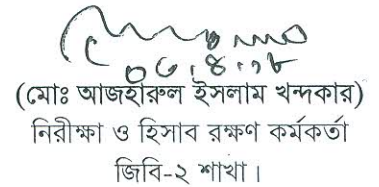 ০৮.৪.১৮
(মোঃ আজহারুল ইসলাম খন্দকার)
নিরীক্ষা ও হিসাব রক্ষণ কর্মকর্তা
জিবি-২ শাখা।